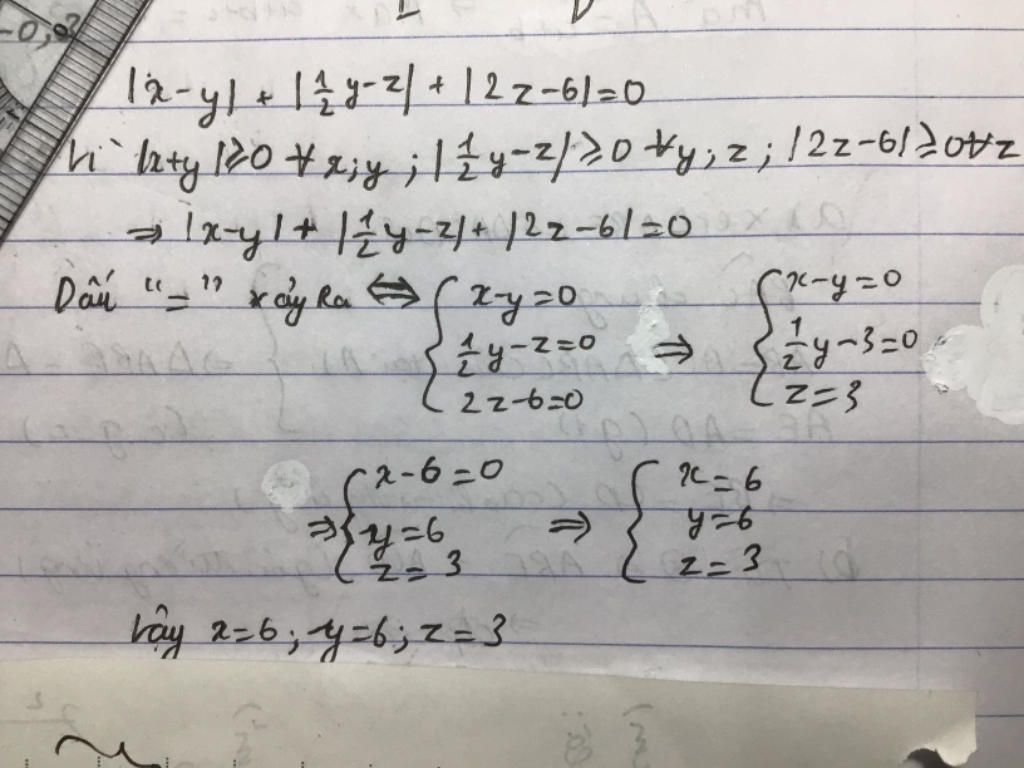 -0,8
|x-y| + |1/2 y-z| + |2z-6| = 0
Vì |x+y| ≥ 0 ∀ x;y ; |1/2 y-z| ≥ 0 ∀ y;z ; |2z-6| ≥ 0 ∀ z
⇒ |x-y| + |1/2 y-z| + |2z-6| = 0
Dấu "=" xảy Ra ⇔ { x-y=0 ; 1/2 y-z=0 ; 2z-6=0 ⇒ { x-y=0 ; 1/2 y-3=0 ; z=3
⇒ { x-6=0 ; y=6 ; z=3 ⇒ { x=6 ; y=6 ; z=3
Vậy x=6; y=6; z=3